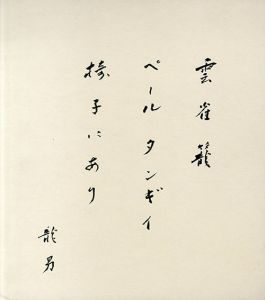 雲雀籠
ペール タンギイ
椅子にあり
龍男